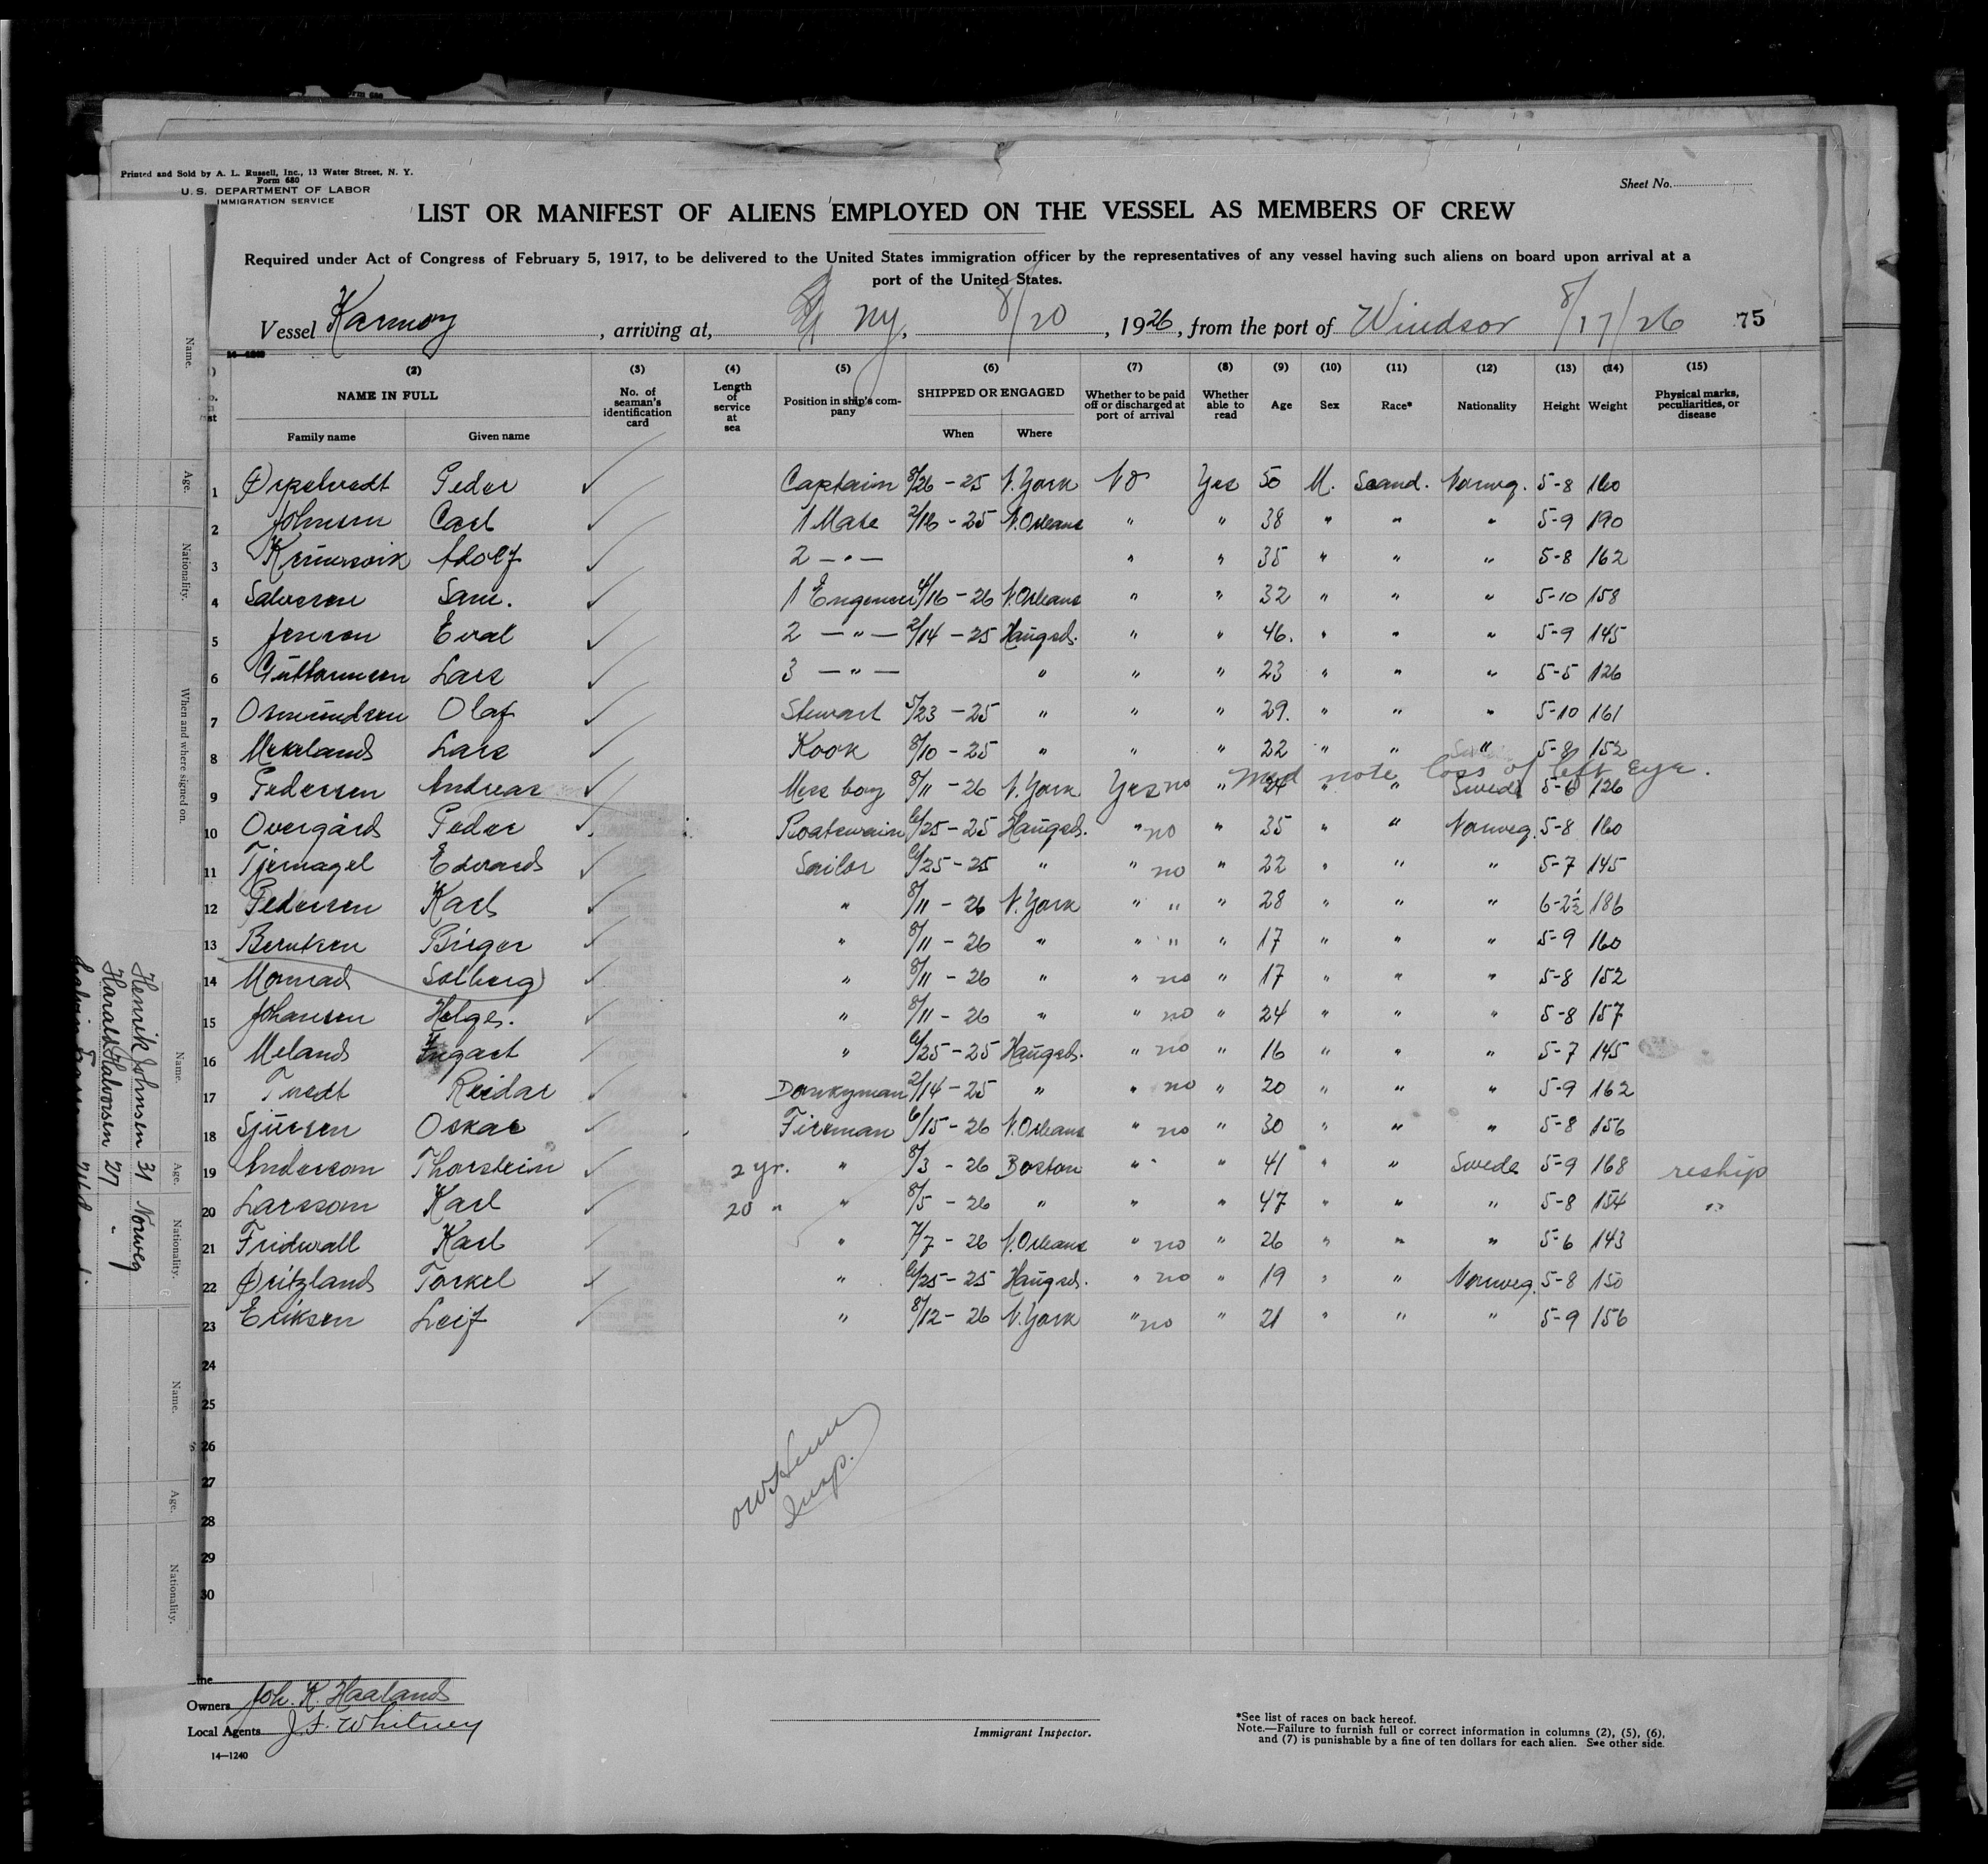 Printed and Sold by A. L. Russell, Inc., 13 Water Street, N. Y.
Form 680
U. S. DEPARTMENT OF LABOR
IMMIGRATION SERVICE
Sheet No.
LIST OR MANIFEST OF ALIENS EMPLOYED ON THE VESSEL AS MEMBERS OF CREW
Required under Act of Congress of February 5, 1917, to be delivered to the United States immigration officer by the representatives of any vessel having such aliens on board upon arrival at a
port of the United States.
Vessel Karmoy, arriving at, NY, 8/20, 1926, from the port of Windsor 8/17/26 75
14—1240
(2) (3) (4) (5) (6) (7) (8) (9) (10) (11) (12) (13) (14) (15)
NAME IN FULL No. of seaman's identification card Length of service at sea Position in ship's company SHIPPED OR ENGAGED Whether to be paid off or discharged at port of arrival Whether able to read Age Sex Race* Nationality Height Weight Physical marks, peculiarities, or disease
Family name Given name When Where
1 Peder ✓ Captain 8/26-25 N.York No Yes 50 M. Scand. Norweg. 5-8 160
2 Johnsen Carl ✓ 1 Mate 2/16-25 N.Orleans " " 38 " " " 5-9 190
3 Adolf ✓ 2 — " — " " 35 " " " 5-8 162
4 Salvesen Sam. ✓ 1 Engeneer 4/16-26 N.Orleans " " 32 " " " 5-10 158
5 Jensen Eival ✓ 2 — " — 2/14-25 Haugsd. " " 46. " " " 5-9 145
6 Guttormsen Lars ✓ 3 — " — " " " 23 " " " 5-5 126
7 Osmundsen Olaf ✓ Stewart 5/23-25 " " " 29. " " " 5-10 161
8 Mekelands Lars ✓ Kook 8/10-25 " " " 22 " " " 5-8 152
med note loss of left eye.
9 Pedersen Andreas ✓ Mess boy 8/11-26 N.York Yes no " 24 " " Swede 5-6 126
10 Overgård Peder ✓ Boatswain 6/25-25 Haugsd. " no " 35 " " Norweg. 5-8 160
11 Tjernagel Edvard ✓ Sailor 6/25-25 " " no " 22 " " " 5-7 145
12 Pedersen Karl ✓ " 8/11-26 N.York " " " 28 " " " 6-2½ 186
13 Berntsen Birger ✓ " 8/11-26 " " " " 17 " " " 5-9 160
14 Monrad Solberg ✓ " 8/11-26 " " no " 17 " " " 5-8 152
15 Johansen Helge. ✓ " 8/11-26 " " no " 24 " " " 5-8 157
16 Meland Ingart ✓ " 6/25-25 Haugsd. " no " 16 " " " 5-7 145
17 Tvedt Reidar ✓ Donkyman 2/14-25 " " no " 20 " " " 5-9 162
18 Sjursen Oskar ✓ Fireman 6/15-26 N.Orleans " no " 30 " " " 5-8 156
19 Anderson Thorstein ✓ 2 yr. " 8/3-26 Boston " " 41 " " Swede 5-9 168 reship
20 Larsson Karl ✓ 20 " " 8/5-26 " " " 47 " " " 5-8 154 "
21 Fridwall Karl ✓ " 7/7-26 N.Orleans " no " 26 " " " 5-6 143
22 Øritzland Torkel ✓ " 6/25-25 Haugsd. " no " 19 " " Norweg. 5-8 150
23 Eriksen Leif ✓ " 8/12-26 N.York " no " 21 " " " 5-9 156
24
25
26
27
28
29
30
Insp.
Line
Owners Joh. K. Haaland
Local Agents J. F. Whitney
14—1240
Immigrant Inspector.
*See list of races on back hereof.
Note.—Failure to furnish full or correct information in columns (2), (5), (6),
and (7) is punishable by a fine of ten dollars for each alien. See other side.
Name. Age. Nationality. When and where signed on.
Name. Age. Nationality.
Name. Age. Nationality.
Henrik Johnsen 31 Norweg
Harald Halvorsen 27 "